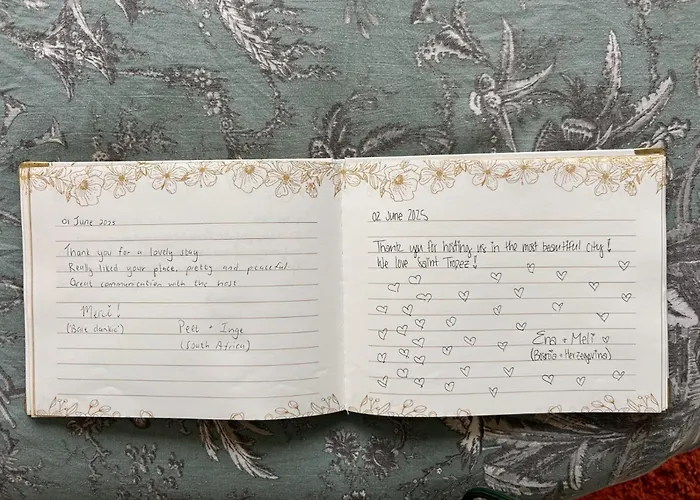 01 June 2025
Thank you for a lovely stay.
Really liked your place, pretty and peaceful
Great communication with the host
Merci!
('Baie dankie')
Piet + Inge
(South Africa)
02 June 2025
Thank you for hosting us in the most beautiful city!
We love Saint Tropez!
Ena + Meli
(Bosnia + Herzegovina)